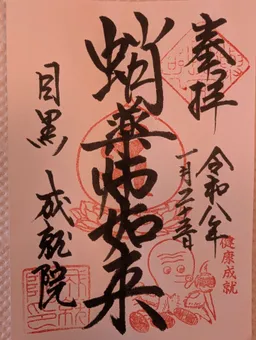 奉拝
令和八年
一月二十三日
健康成就
蛸薬師如来
目黒
成就院